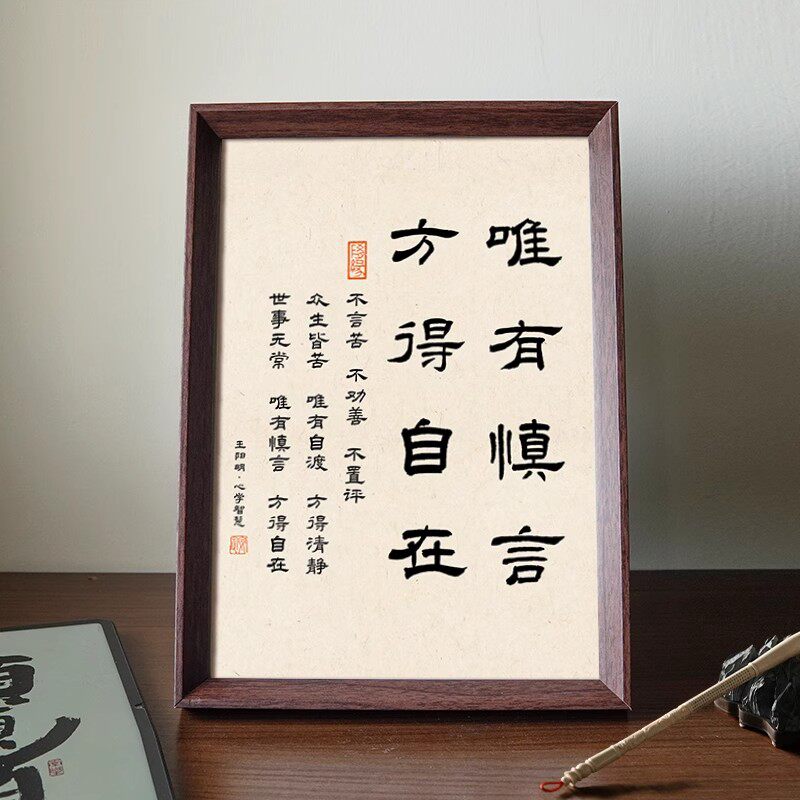 唯有慎言
方得自在
不言苦 不劝善 不置评
众生皆苦 唯有自渡 方得清静
世事无常 唯有慎言 方得自在
王阳明·心学智慧